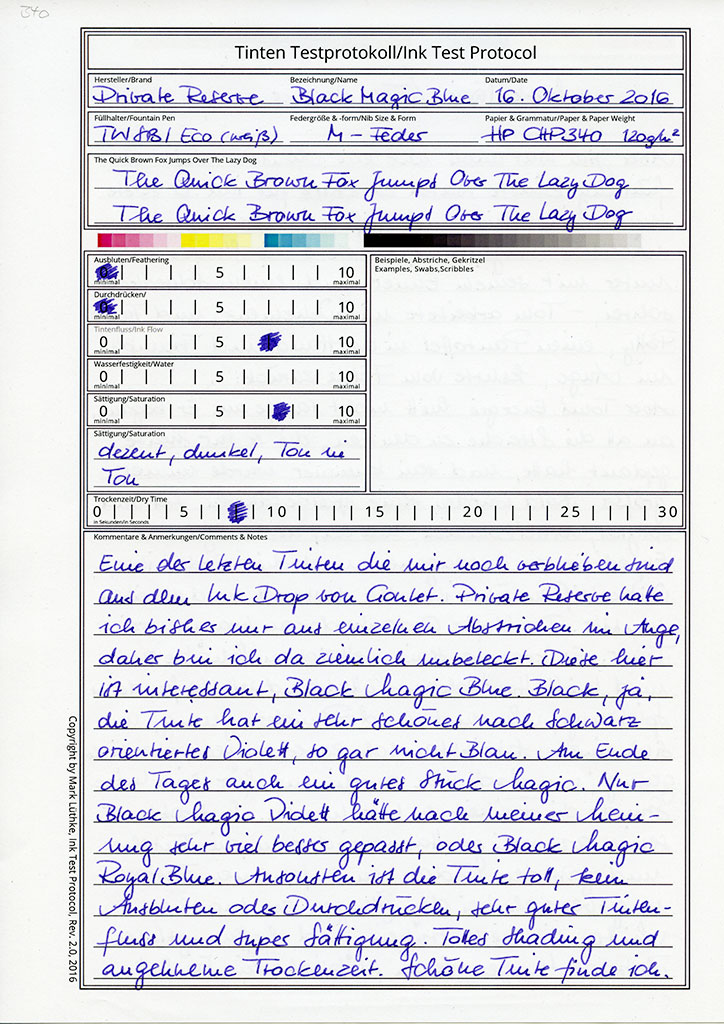 340
Tinten Testprotokoll/Ink Test Protocol
Hersteller/Brand Bezeichnung/Name Datum/Date
Private Reserve Black Magic Blue 16. Oktober 2016
Füllhalter/Fountain Pen Federgröße & -form/Nib Size & Form Papier & Grammatur/Paper & Paper Weight
TWSBI Eco (weiß) M - Feder HP CHP340 120g/m²
The Quick Brown Fox Jumps Over The Lazy Dog
The Quick Brown Fox Jumps Over The Lazy Dog
The Quick Brown Fox Jumps Over The Lazy Dog
Ausbluten/Feathering
0 5 10
minimal maximal
Durchdrücken/
0 5 10
minimal maximal
Tintenfluss/Ink Flow
0 5 10
minimal maximal
Wasserfestigkeit/Water
0 5 10
minimal maximal
Sättigung/Saturation
0 5 10
minimal maximal
Sättigung/Saturation
dezent, dunkel, Ton in
Ton
Beispiele, Abstriche, Gekritzel
Examples, Swabs,Scribbles
Trockenzeit/Dry Time
0 5 10 15 20 25 30
in Sekunden/in Seconds
Kommentare & Anmerkungen/Comments & Notes
Eine der letzten Tinten die mir noch verblieben sind
aus dem Ink Drop von Goulet. Private Reserve hatte
ich bisher nur aus einzelnen Abstrichen im Auge,
daher bin ich da ziemlich unbeleckt. Diese hier
ist interessant, Black Magic Blue. Black, ja,
die Tinte hat ein sehr schönes nach Schwarz
orientiertes Violett, so gar nicht Blau. Am Ende
des Tages auch ein gutes Stück Magic. Nur
Black Magic Violett hätte nach meiner Mein-
ung sehr viel besser gepasst, oder Black Magic
Royal Blue. Ansonsten ist die Tinte toll, kein
Ausbluten oder Durchdrücken, sehr guter Tinten-
fluss und super Sättigung. Tolles Shading und
angenehme Trockenzeit. Schöne Tinte finde ich.
Copyright by Mark Lüthke, Ink Test Protocol, Rev. 2.0, 2016